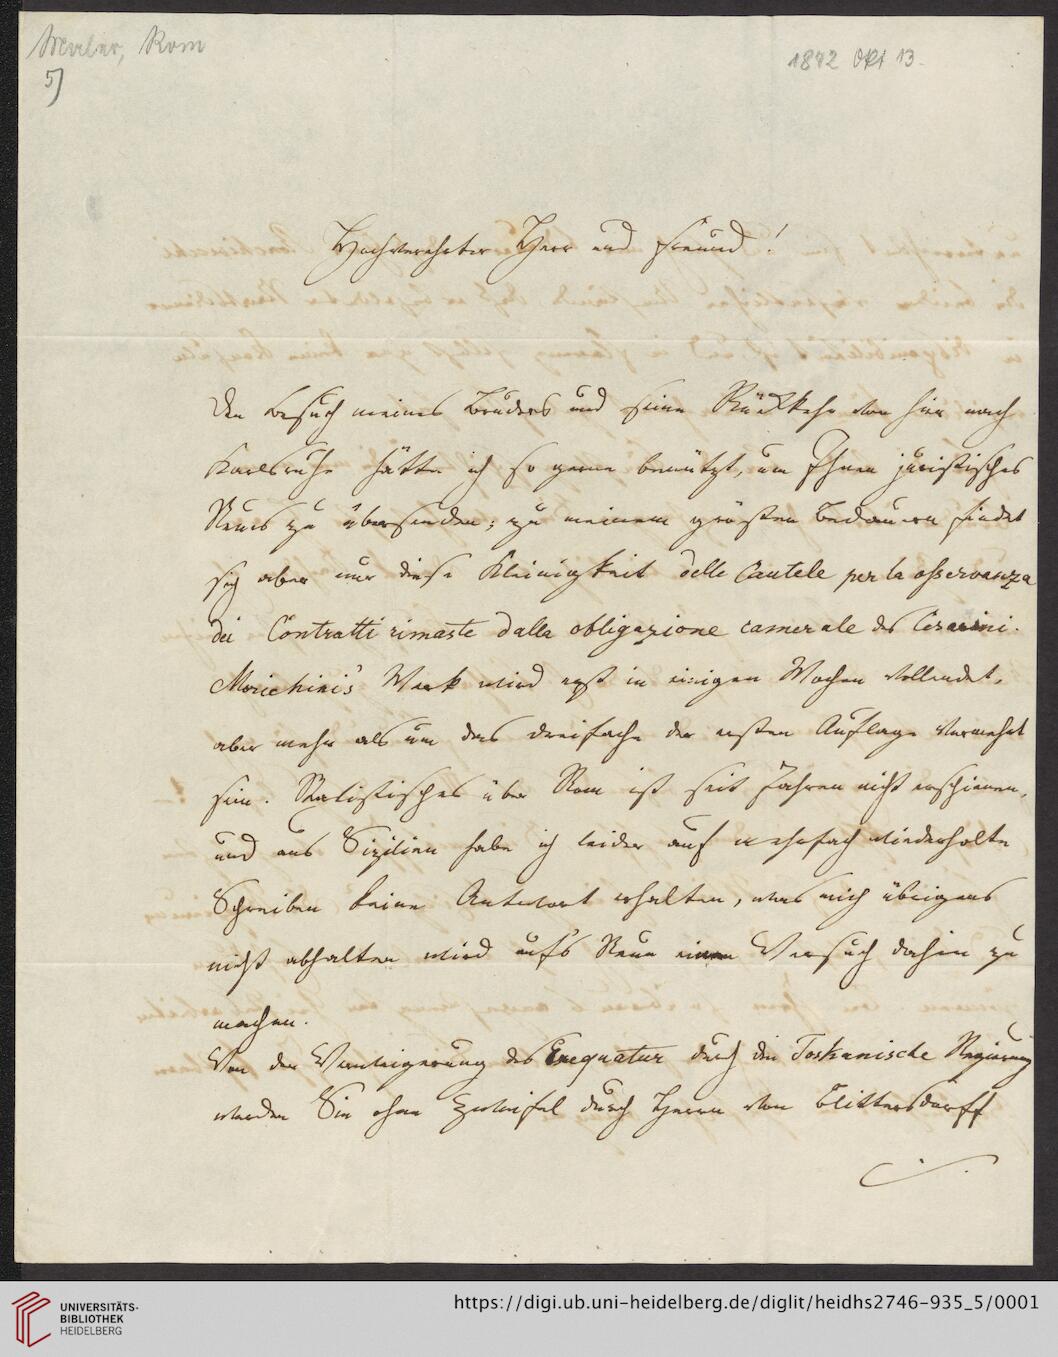 Maler, Rom
5)
1842 Okt 13.
Hochverehrter Herr und Freund!
Den Besuch meines Bruders und seine Rückkehr von hier nach
Karlsruhe hätte ich so gerne benützt, um Ihnen juristisches
Neues zu übersenden; zu meinem größten Bedauern findet
sich aber nur diese Kleinigkeit delle Cautele per la osservanza
dei Contratti rimaste dalla obligazione camerale des Cesarini.
Morichini's Werk wird erst in einigen Wochen vollendet,
aber mehr als um das dreifache der ersten Auflage vermehrt
sein. Statistisches über Rom ist seit Jahren nicht erschienen,
und aus Sizilien habe ich leider auf mehrfach wiederholte
Schreiben keine Antwort erhalten, was mich übrigens
nicht abhalten wird aufs Neue einen Versuch dahin zu
machen.
Von der Verweigerung des Exequatur durch die Toskanische Regierung
werden Sie ohne Zweifel durch Herrn von Blittersdorff
UNIVERSITÄTS-
BIBLIOTHEK
HEIDELBERG
https://digi.ub.uni-heidelberg.de/diglit/heidhs2746-935_5/0001